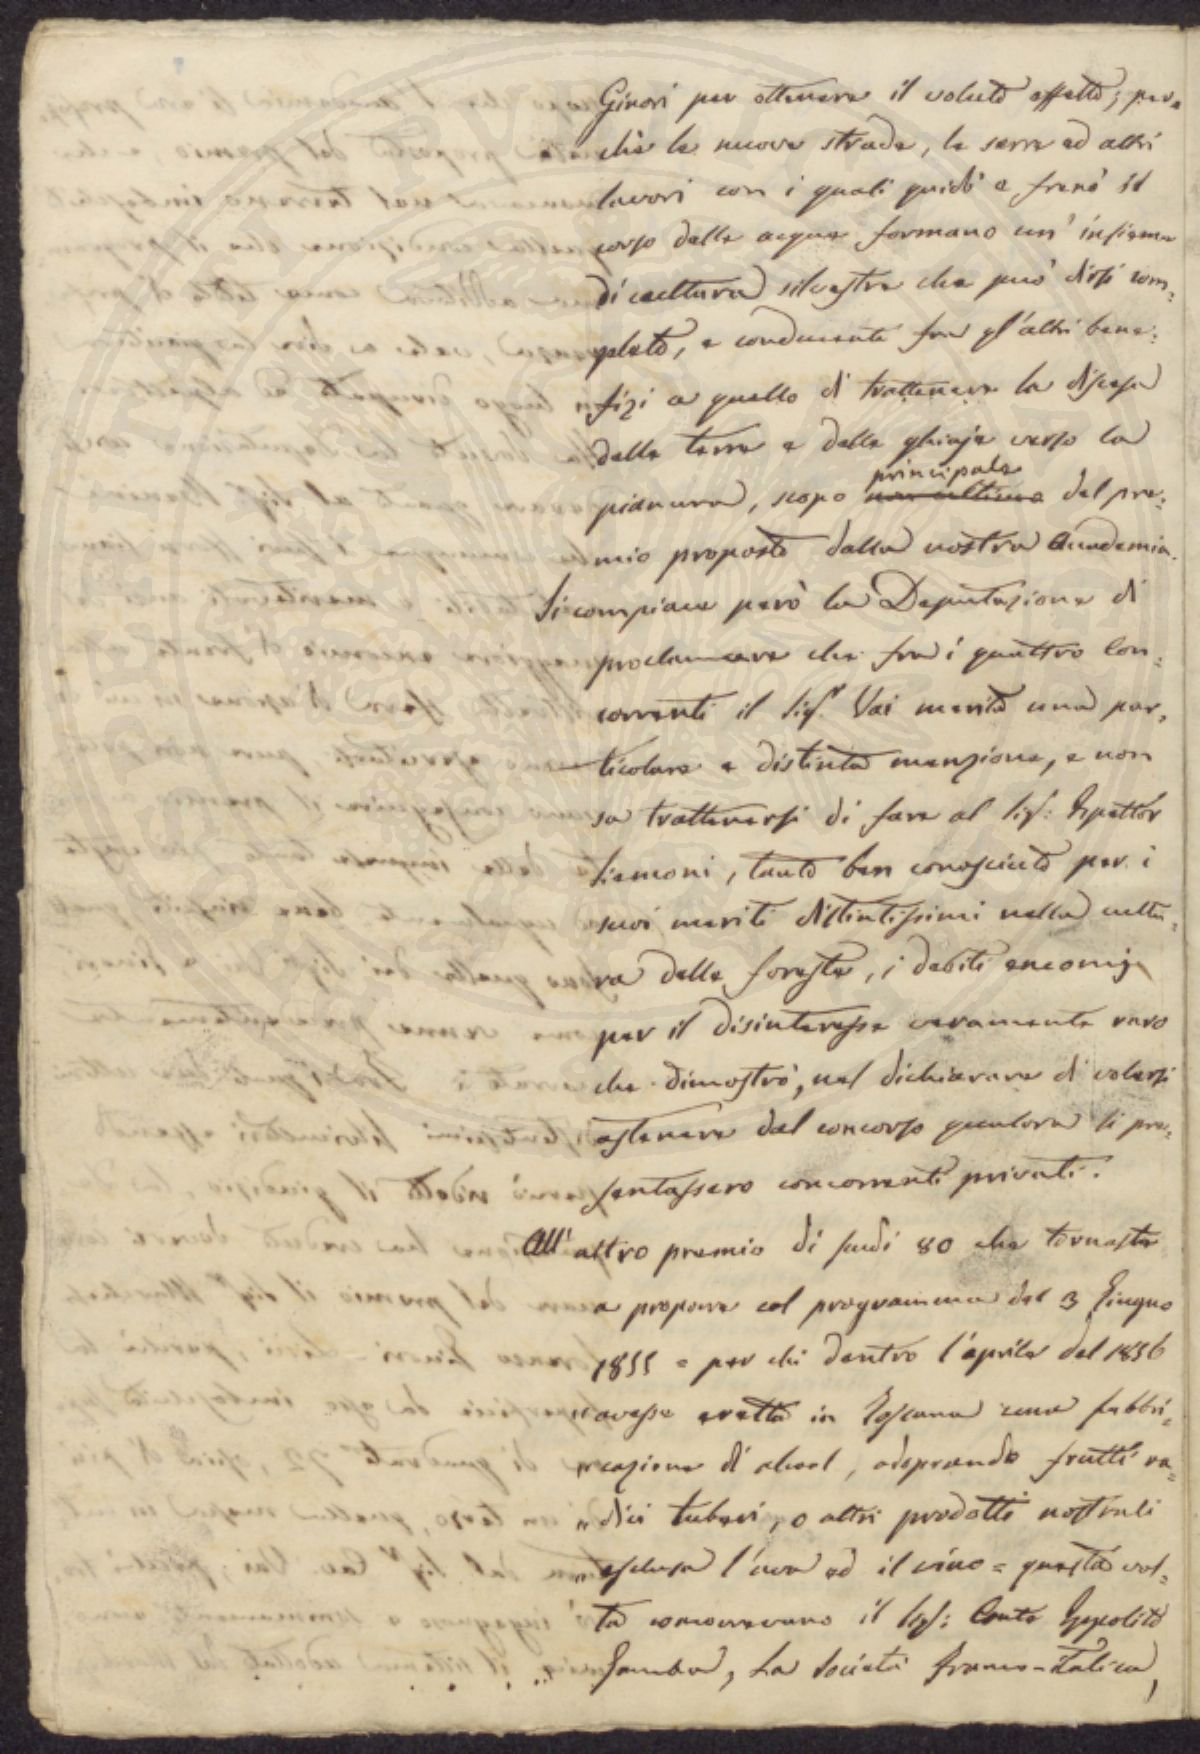 Ginori per ottenere il voluto effetto; per=
chè le nuove strade, le serre ed altri
lavori con i quali guidò e frenò il
corso delle acque formano un' insieme
di cultura silvestre che può dirsi com=
pleto, e conducente fra gl'altri bene=
fizi a quello di trattenere la discesa
delle terre e delle ghiaje verso la
principale
pianura, scopo non ultimo del pre=
mio proposto dalla nostra Accademia.
Si compiace però la Deputazione di
proclamare che fra i quattro Con=
correnti il Sigr. Vai merita una par=
ticolare e distinta menzione, e non
sa trattenersi di fare al Sig: Ispettor
Siemoni, tanto ben conosciuto per i
suoi meriti distintissimi nella cultu=
ra delle foreste, i debiti encomj
per il disinteresse veramente raro
che dimostrò, nel dichiarare di volersi
astenere dal concorso qualora si pre=
sentassero concorrenti privati.
All' altro premio di scudi 80 che tornaste
a proporre col programma del 3 Giugno
1855 = per chi dentro l'aprile del 1856
" avesse eretta in Toscana una fabbri=
" cazione di alcool, adoprando frutti ra=
" dici tuberi, o altri prodotti nostrali
" esclusa l'uva ed il vino = questa vol=
ta concorrevano il Sig: Conte Ippolito
Gamba, La Società Franco-italica,